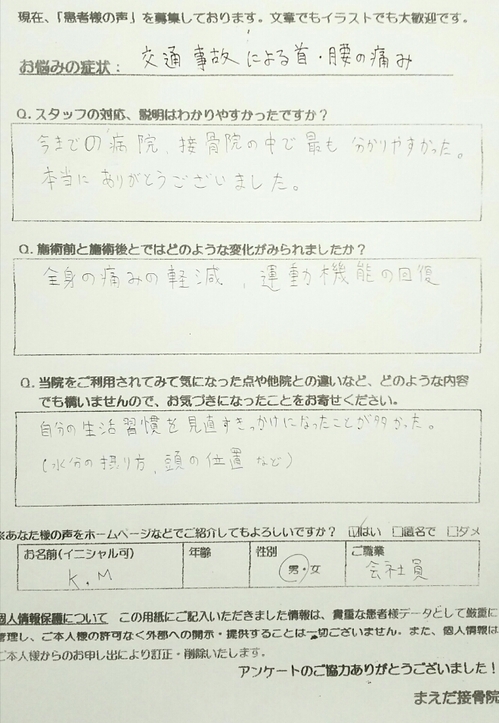 現在、「患者様の声」を募集しております。文章でもイラストでも大歓迎です。
お悩みの症状： 交通事故による首・腰の痛み
Q. スタッフの対応、説明はわかりやすかったですか？
今までの病院、接骨院の中で最も分かりやすかった。
本当にありがとうございました。
Q. 施術前と施術後とではどのような変化がみられましたか？
全身の痛みの軽減、運動機能の回復
Q. 当院をご利用されてみて気になった点や他院との違いなど、どのような内容
でも構いませんので、お気づきになったことをお寄せください。
自分の生活習慣を見直すきっかけになったことが多かった。
(水分の摂り方、頭の位置など)
※あなた様の声をホームページなどでご紹介してもよろしいですか？ ☑はい □匿名で □ダメ
お名前(イニシャル可) 年齢 性別 ご職業
K.M 男・女 会社員
個人情報保護について この用紙にご記入いただきました情報は、貴重な患者様データとして厳重に
管理し、ご本人様の許可なく外部への開示・提供することは一切ございません。また、個人情報は
ご本人様からのお申し出により訂正・削除いたします。
アンケートのご協力ありがとうございました！
まえだ接骨院